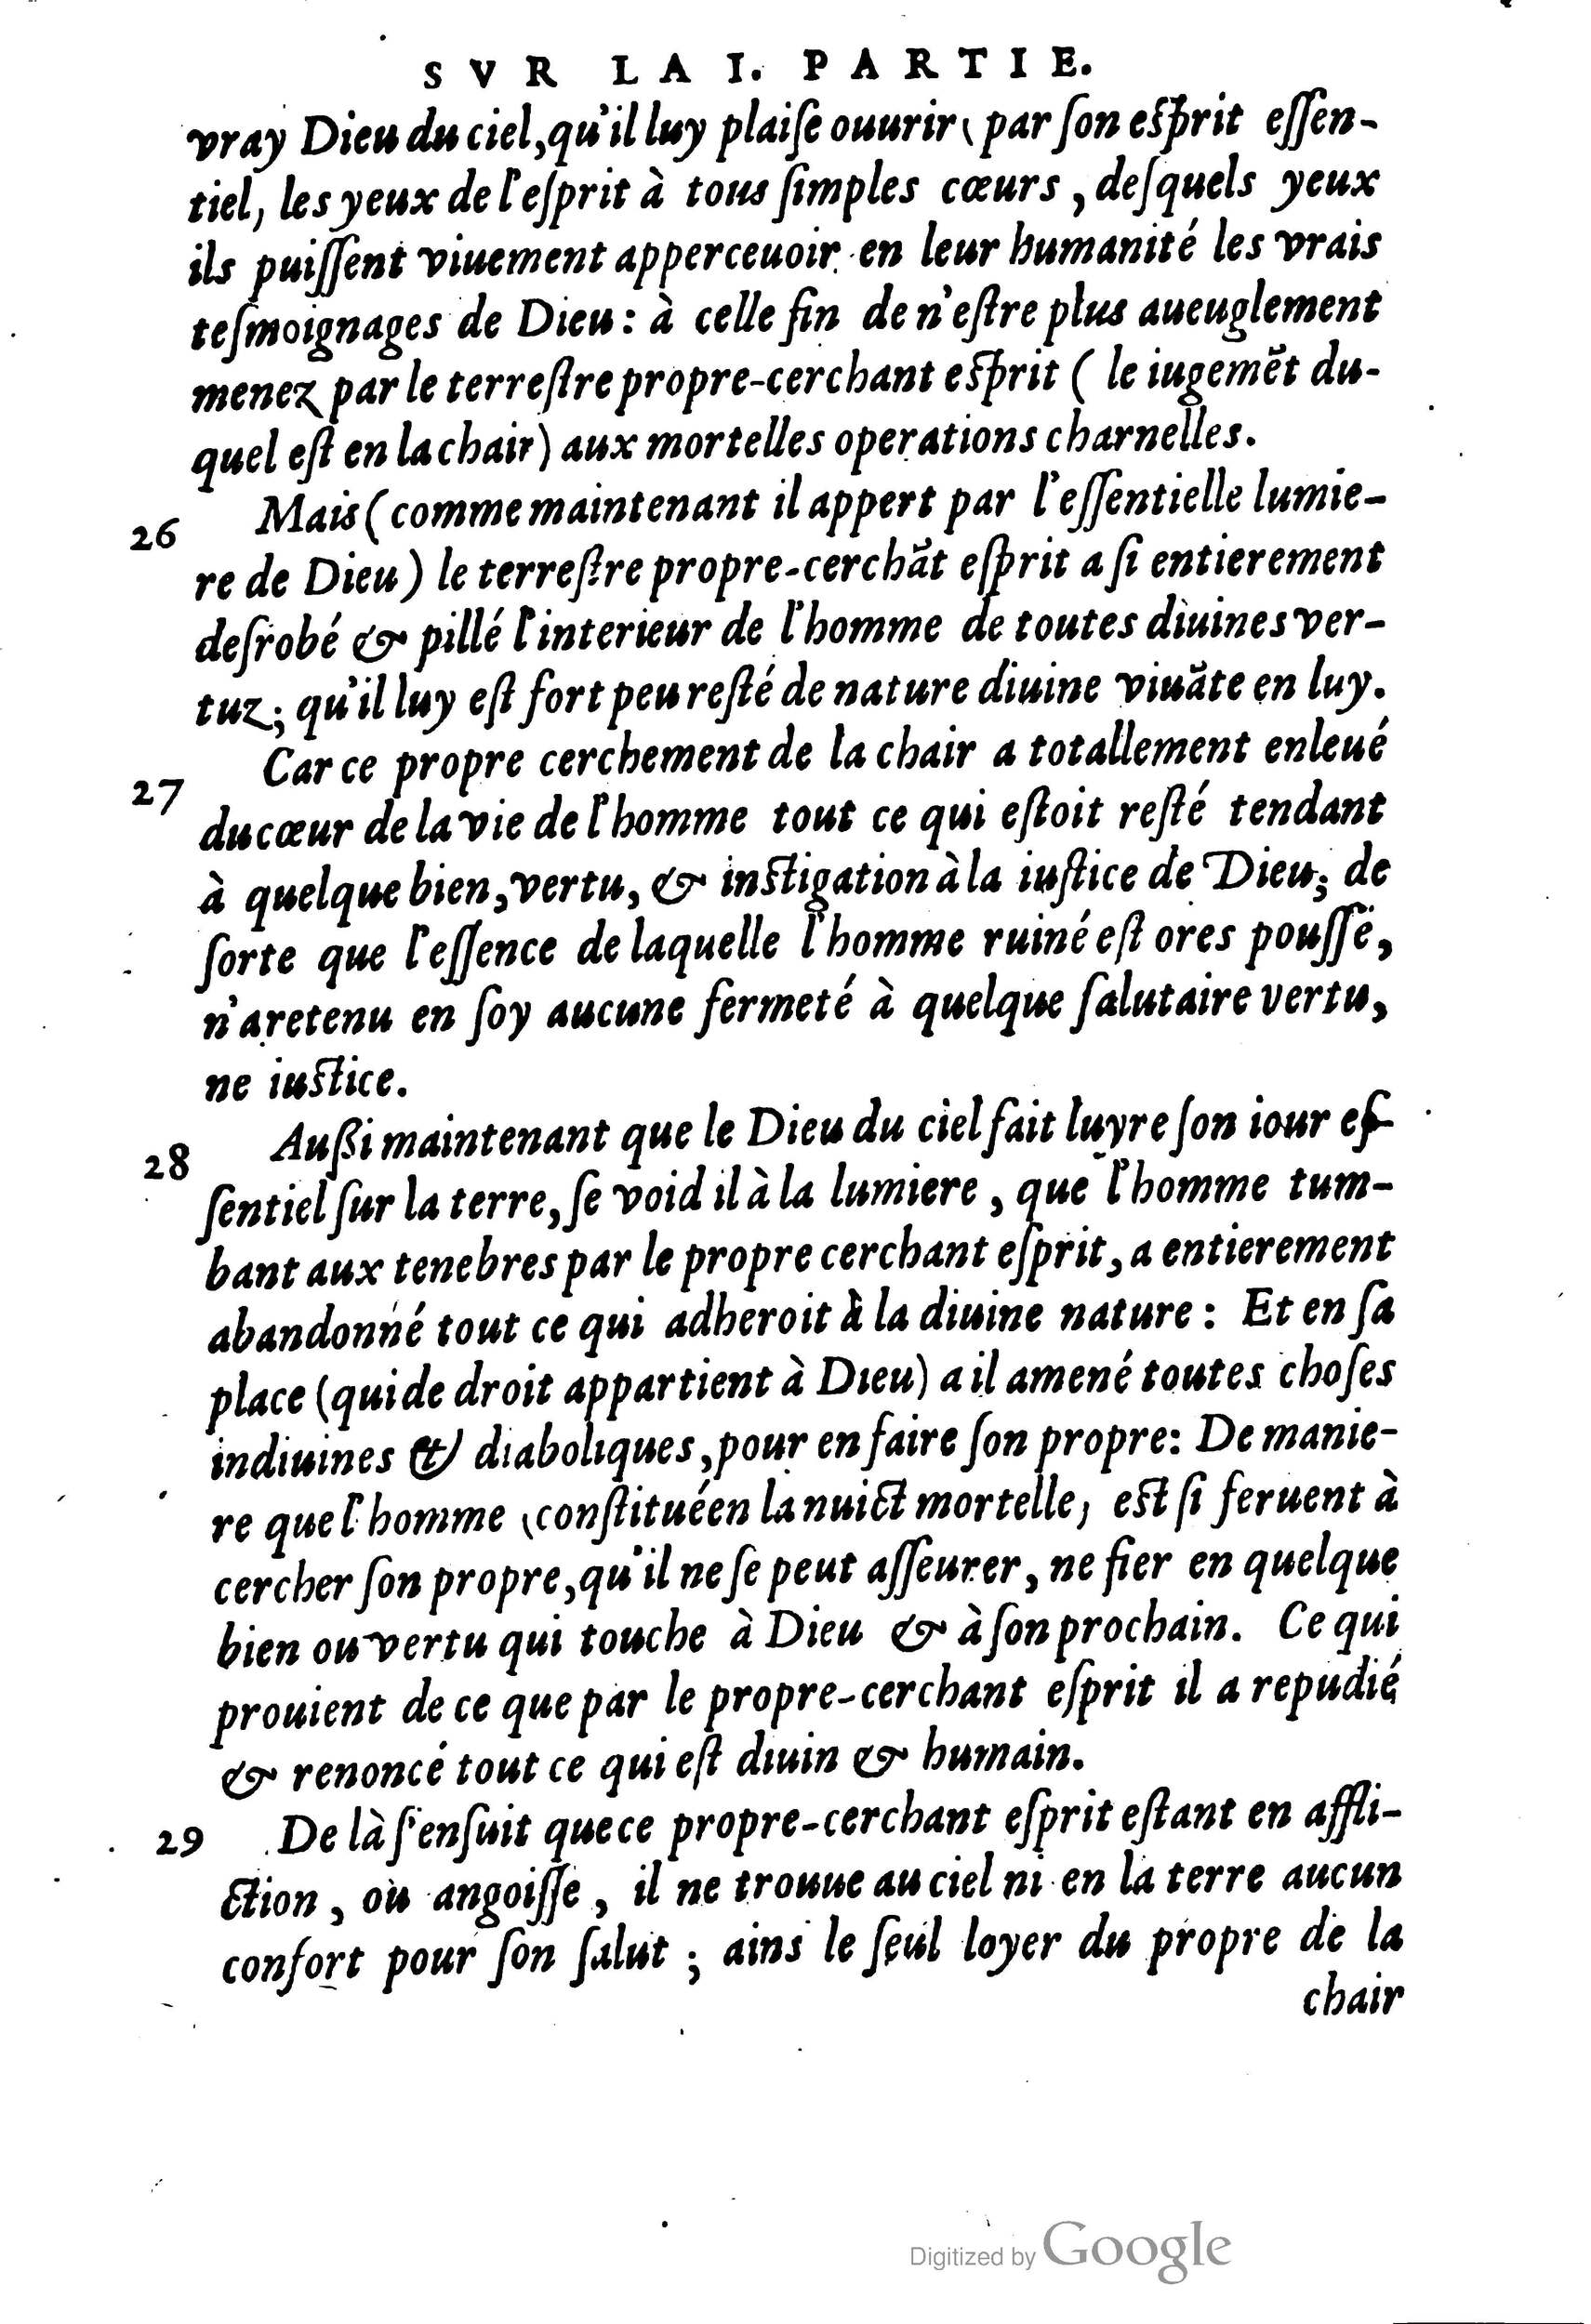 SVR LA I. PARTIE.
vray Dieu du ciel, qu'il luy plaiſe ouurir, par ſon eſprit eſſen-
tiel, les yeux de l'eſprit à tous ſimples cœurs, deſquels yeux
ils puiſſent viuement apperceuoir en leur humanité les vrais
teſmoignages de Dieu: à celle fin de n'eſtre plus aueuglement
menez par le terreſtre propre-cerchant eſprit ( le iugemēt du-
quel eſt en la chair) aux mortelles operations charnelles.
26 Mais (comme maintenant il appert par l'eſſentielle lumie-
re de Dieu) le terreſtre propre-cerchāt eſprit a ſi entierement
deſrobé & pillé l'interieur de l'homme de toutes diuines ver-
tuz; qu'il luy eſt fort peu reſté de nature diuine viuāte en luy.
27 Car ce propre cerchement de la chair a totallement enleué
du cœur de la vie de l'homme tout ce qui eſtoit reſté tendant
à quelque bien, vertu, & inſtigation à la iuſtice de Dieu; de
ſorte que l'eſſence de laquelle l'homme ruiné eſt ores pouſſé,
n'a retenu en ſoy aucune fermeté à quelque ſalutaire vertu,
ne iuſtice.
28 Außi maintenant que le Dieu du ciel fait luyre ſon iour eſ-
ſentiel ſur la terre, ſe void il à la lumiere, que l'homme tum-
bant aux tenebres par le propre cerchant eſprit, a entierement
abandonné tout ce qui adheroit à la diuine nature: Et en ſa
place (qui de droit appartient à Dieu) a il amené toutes choſes
indiuines & diaboliques, pour en faire ſon propre: De manie-
re que l'homme, conſtitué en la nuict mortelle, eſt ſi feruent à
cercher ſon propre, qu'il ne ſe peut aſſeurer, ne fier en quelque
bien ou vertu qui touche à Dieu & à ſon prochain. Ce qui
prouient de ce que par le propre-cerchant eſprit il a repudié
& renoncé tout ce qui eſt diuin & humain.
29 De là ſ'enſuit que ce propre-cerchant eſprit eſtant en affli-
ction, ou angoiſſe, il ne trouue au ciel ni en la terre aucun
confort pour ſon ſalut; ains le ſeul loyer du propre de la
chair
Digitized by Google